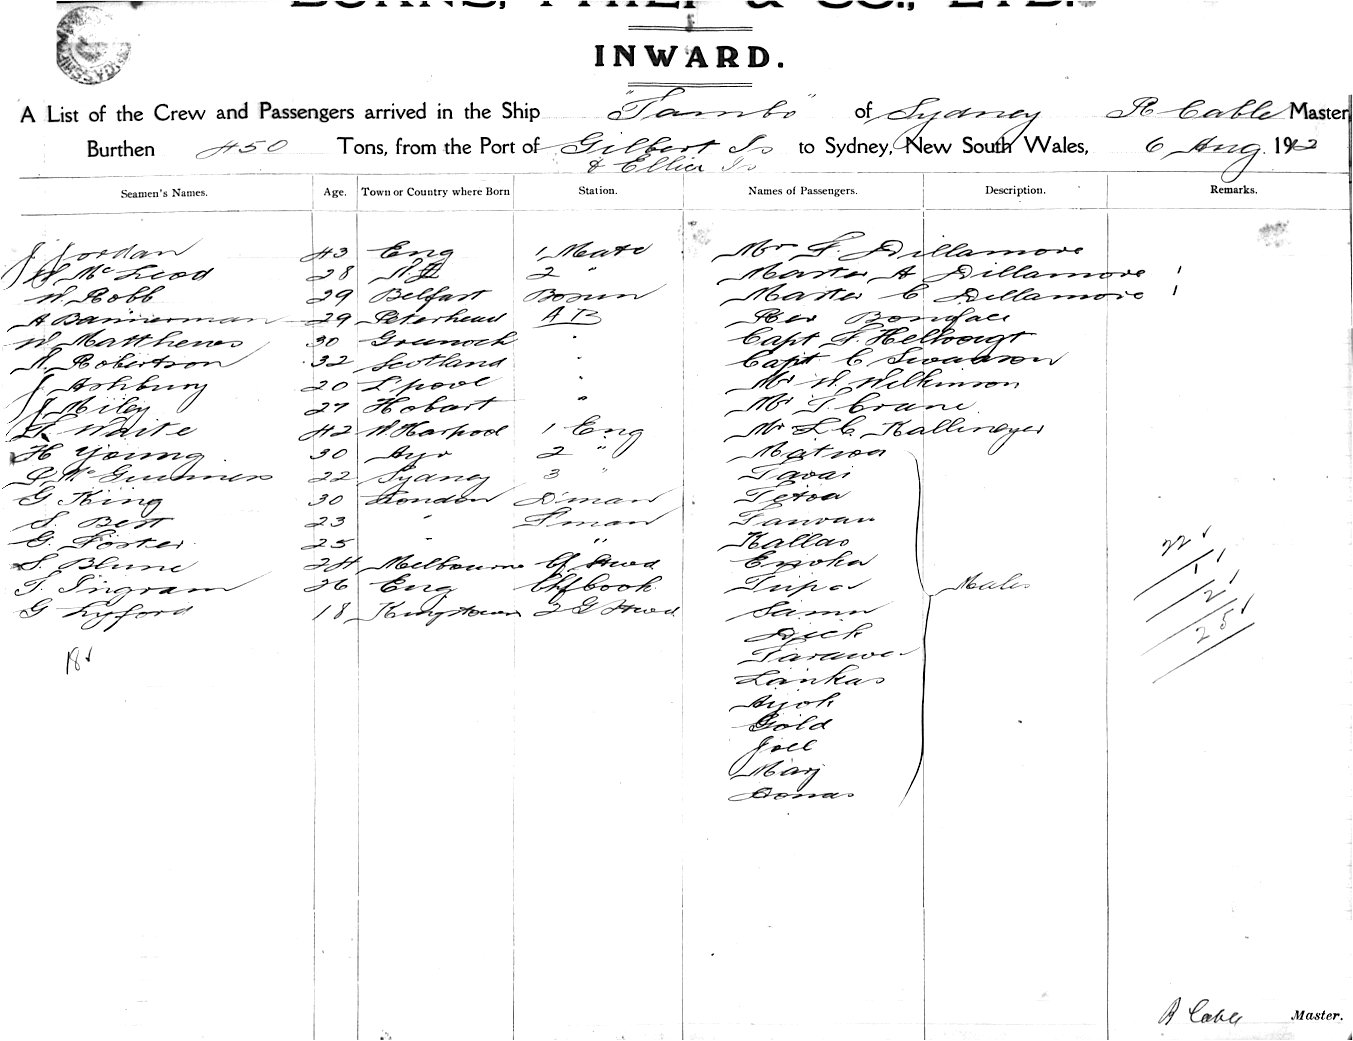 BURNS, PHILP & CO., LTD.
INWARD.
A List of the Crew and Passengers arrived in the Ship "Tambo" of Sydney R Cable Master
Burthen 450 Tons, from the Port of Gilbert Is to Sydney, New South Wales, 6 Aug. 1912
& Ellice Is
Seamen's Names. Age. Town or Country where Born Station. Names of Passengers. Description. Remarks.
J Jordan 43 Eng 1 Mate Mr F. Dillamore
McLeod 28 N.Z 2 " Master A Dillamore 1
W. Robb 29 Belfast Bosun Master C Dillamore 1
A Bannerman 29 Peterhead AB Rev Boniface
W. Matthews 30 Greenock " Capt F. Handley
N. Robertson 32 Scotland " Capt C Swanson
J Ashbury 20 L'pool " Mr W. Wilkinson
J Miley 27 Hobart " Mr Crane
Waite 42 W. Hartpool 1 Eng Mr L C Kallmeyer
H Young 30 Ayr 2 "
McGuinness 22 Sydney 3 " Tavai
G King 30 London D'man Tetoa
S. Best 23 " F'man
G. Foster 25 " " Kallao
S. Blume 24 Melbourne Cf Stwd Enoka
T. Ingram 26 Eng Chf Cook Tupa Males
G Lyford 18 Kingstown 2 G Stwd Samu
Dick
18 Tarawa
Lankas
Ayok
Gold
Joel
Mary
Jonas
22
1
2
25
R Cable Master.